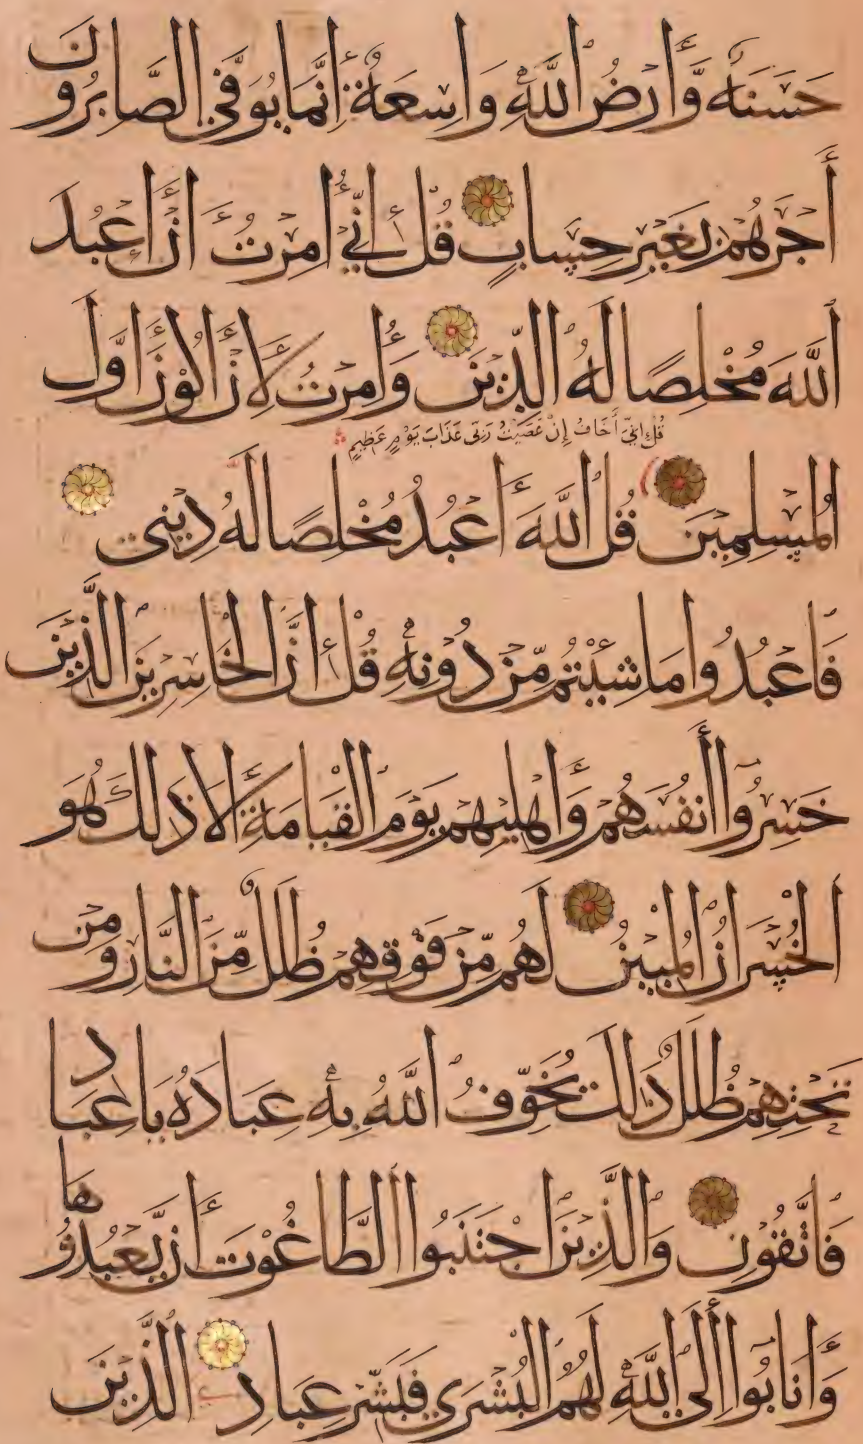 حَسَنَةٌ وَّأَرْضُ اللَّهِ وَاسِعَةٌ إِنَّمَا يُوَفَّى الصَّابِرُونَ
أَجْرَهُمْ بِغَيْرِ حِسَابٍ قُلْ إِنِّي أُمِرْتُ أَنْ أَعْبُدَ
اللَّهَ مُخْلِصًا لَهُ الدِّينَ وَأُمِرْتُ لِأَنْ أَكُونَ أَوَّلَ
قُلْ إِنِّي أَخَافُ إِنْ عَصَيْتُ رَبِّي عَذَابَ يَوْمٍ عَظِيمٍ
الْمُسْلِمِينَ قُلِ اللَّهَ أَعْبُدُ مُخْلِصًا لَهُ دِينِي
فَاعْبُدُوا مَا شِئْتُمْ مِّنْ دُونِهِ قُلْ إِنَّ الْخَاسِرِينَ الَّذِينَ
خَسِرُوا أَنْفُسَهُمْ وَأَهْلِيهِمْ يَوْمَ الْقِيَامَةِ أَلَا ذَلِكَ هُوَ
الْخُسْرَانُ الْمُبِينُ لَهُمْ مِّنْ فَوْقِهِمْ ظُلَلٌ مِّنَ النَّارِ وَمِنْ
تَحْتِهِمْ ظُلَلٌ ذَلِكَ يُخَوِّفُ اللَّهُ بِهِ عِبَادَهُ يَا عِبَادِ
فَاتَّقُونِ وَالَّذِينَ اجْتَنَبُوا الطَّاغُوتَ أَنْ يَّعْبُدُوهَا
وَأَنَابُوا إِلَى اللَّهِ لَهُمُ الْبُشْرَى فَبَشِّرْ عِبَادِ الَّذِينَ